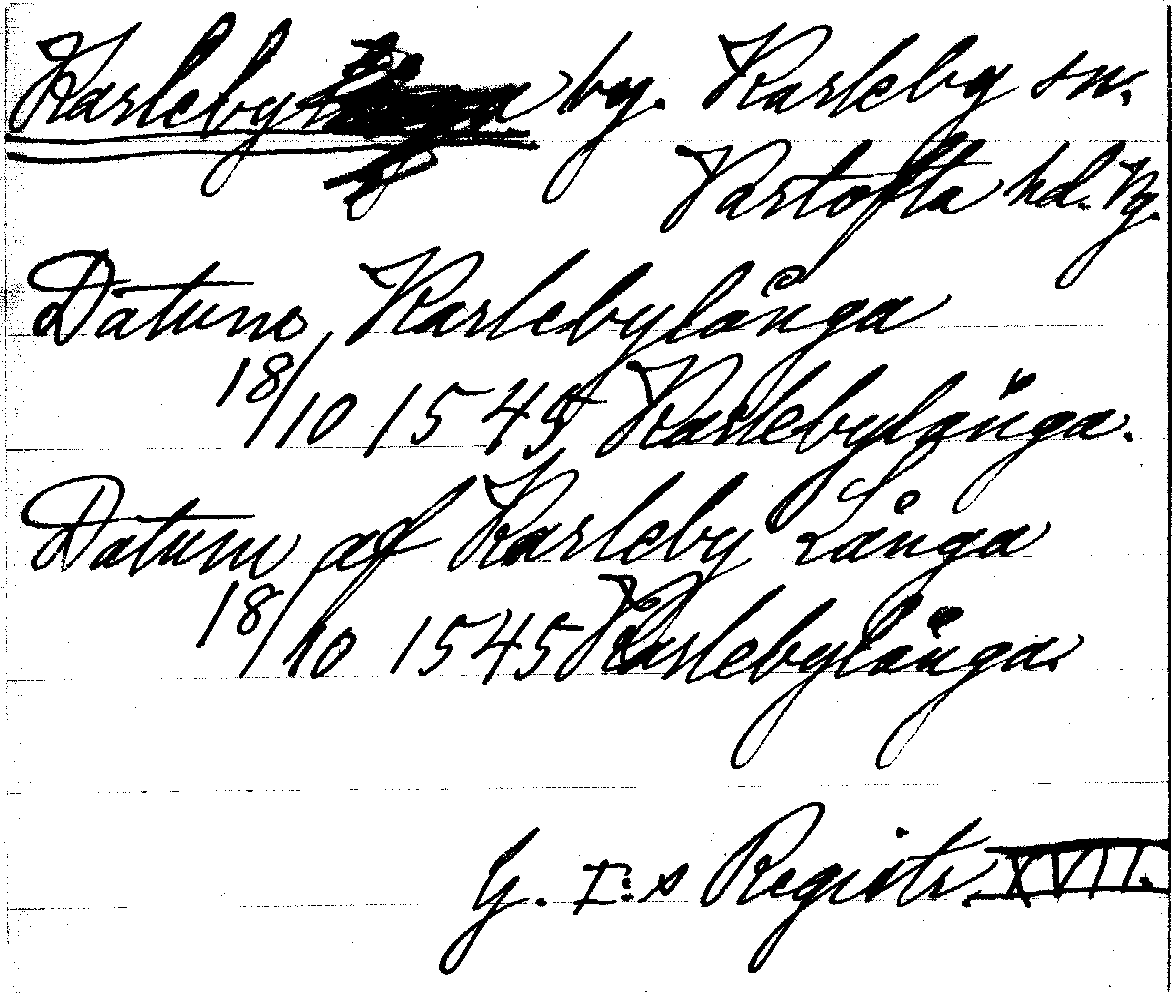 Karleby by. Karleby sn.
Vartofta hd. Vg.
Datum, Karlebylånga
18/10 1545 Karlebylånga.
Datum af Karleby Långa
18/10 1545 Karlebylånga.
G. I:s Registr. XVII.